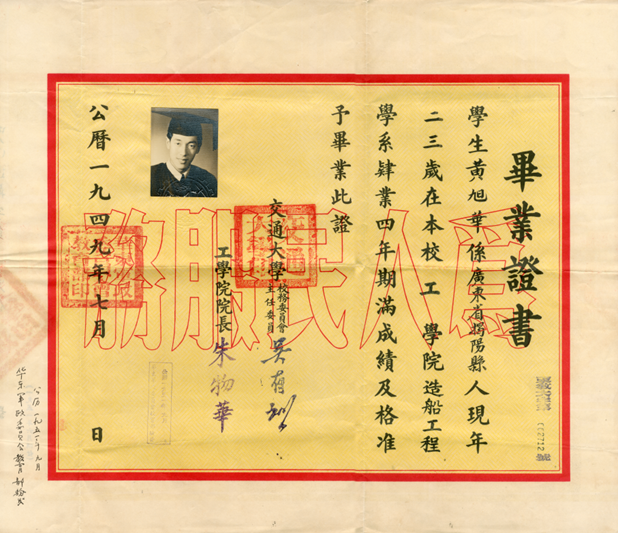 畢業證書
學生黃旭華係廣東省揭陽縣人現年
二三歲在本校工學院造船工程
學系肄業四年期滿成績及格准
予畢業此證
交通大學校務委員會主任委員 吳有訓
工學院院長 朱物華
公曆一九四九年七月 日
為人民服務
公曆一九五一年九月
华东軍政委員会教育部驗訖